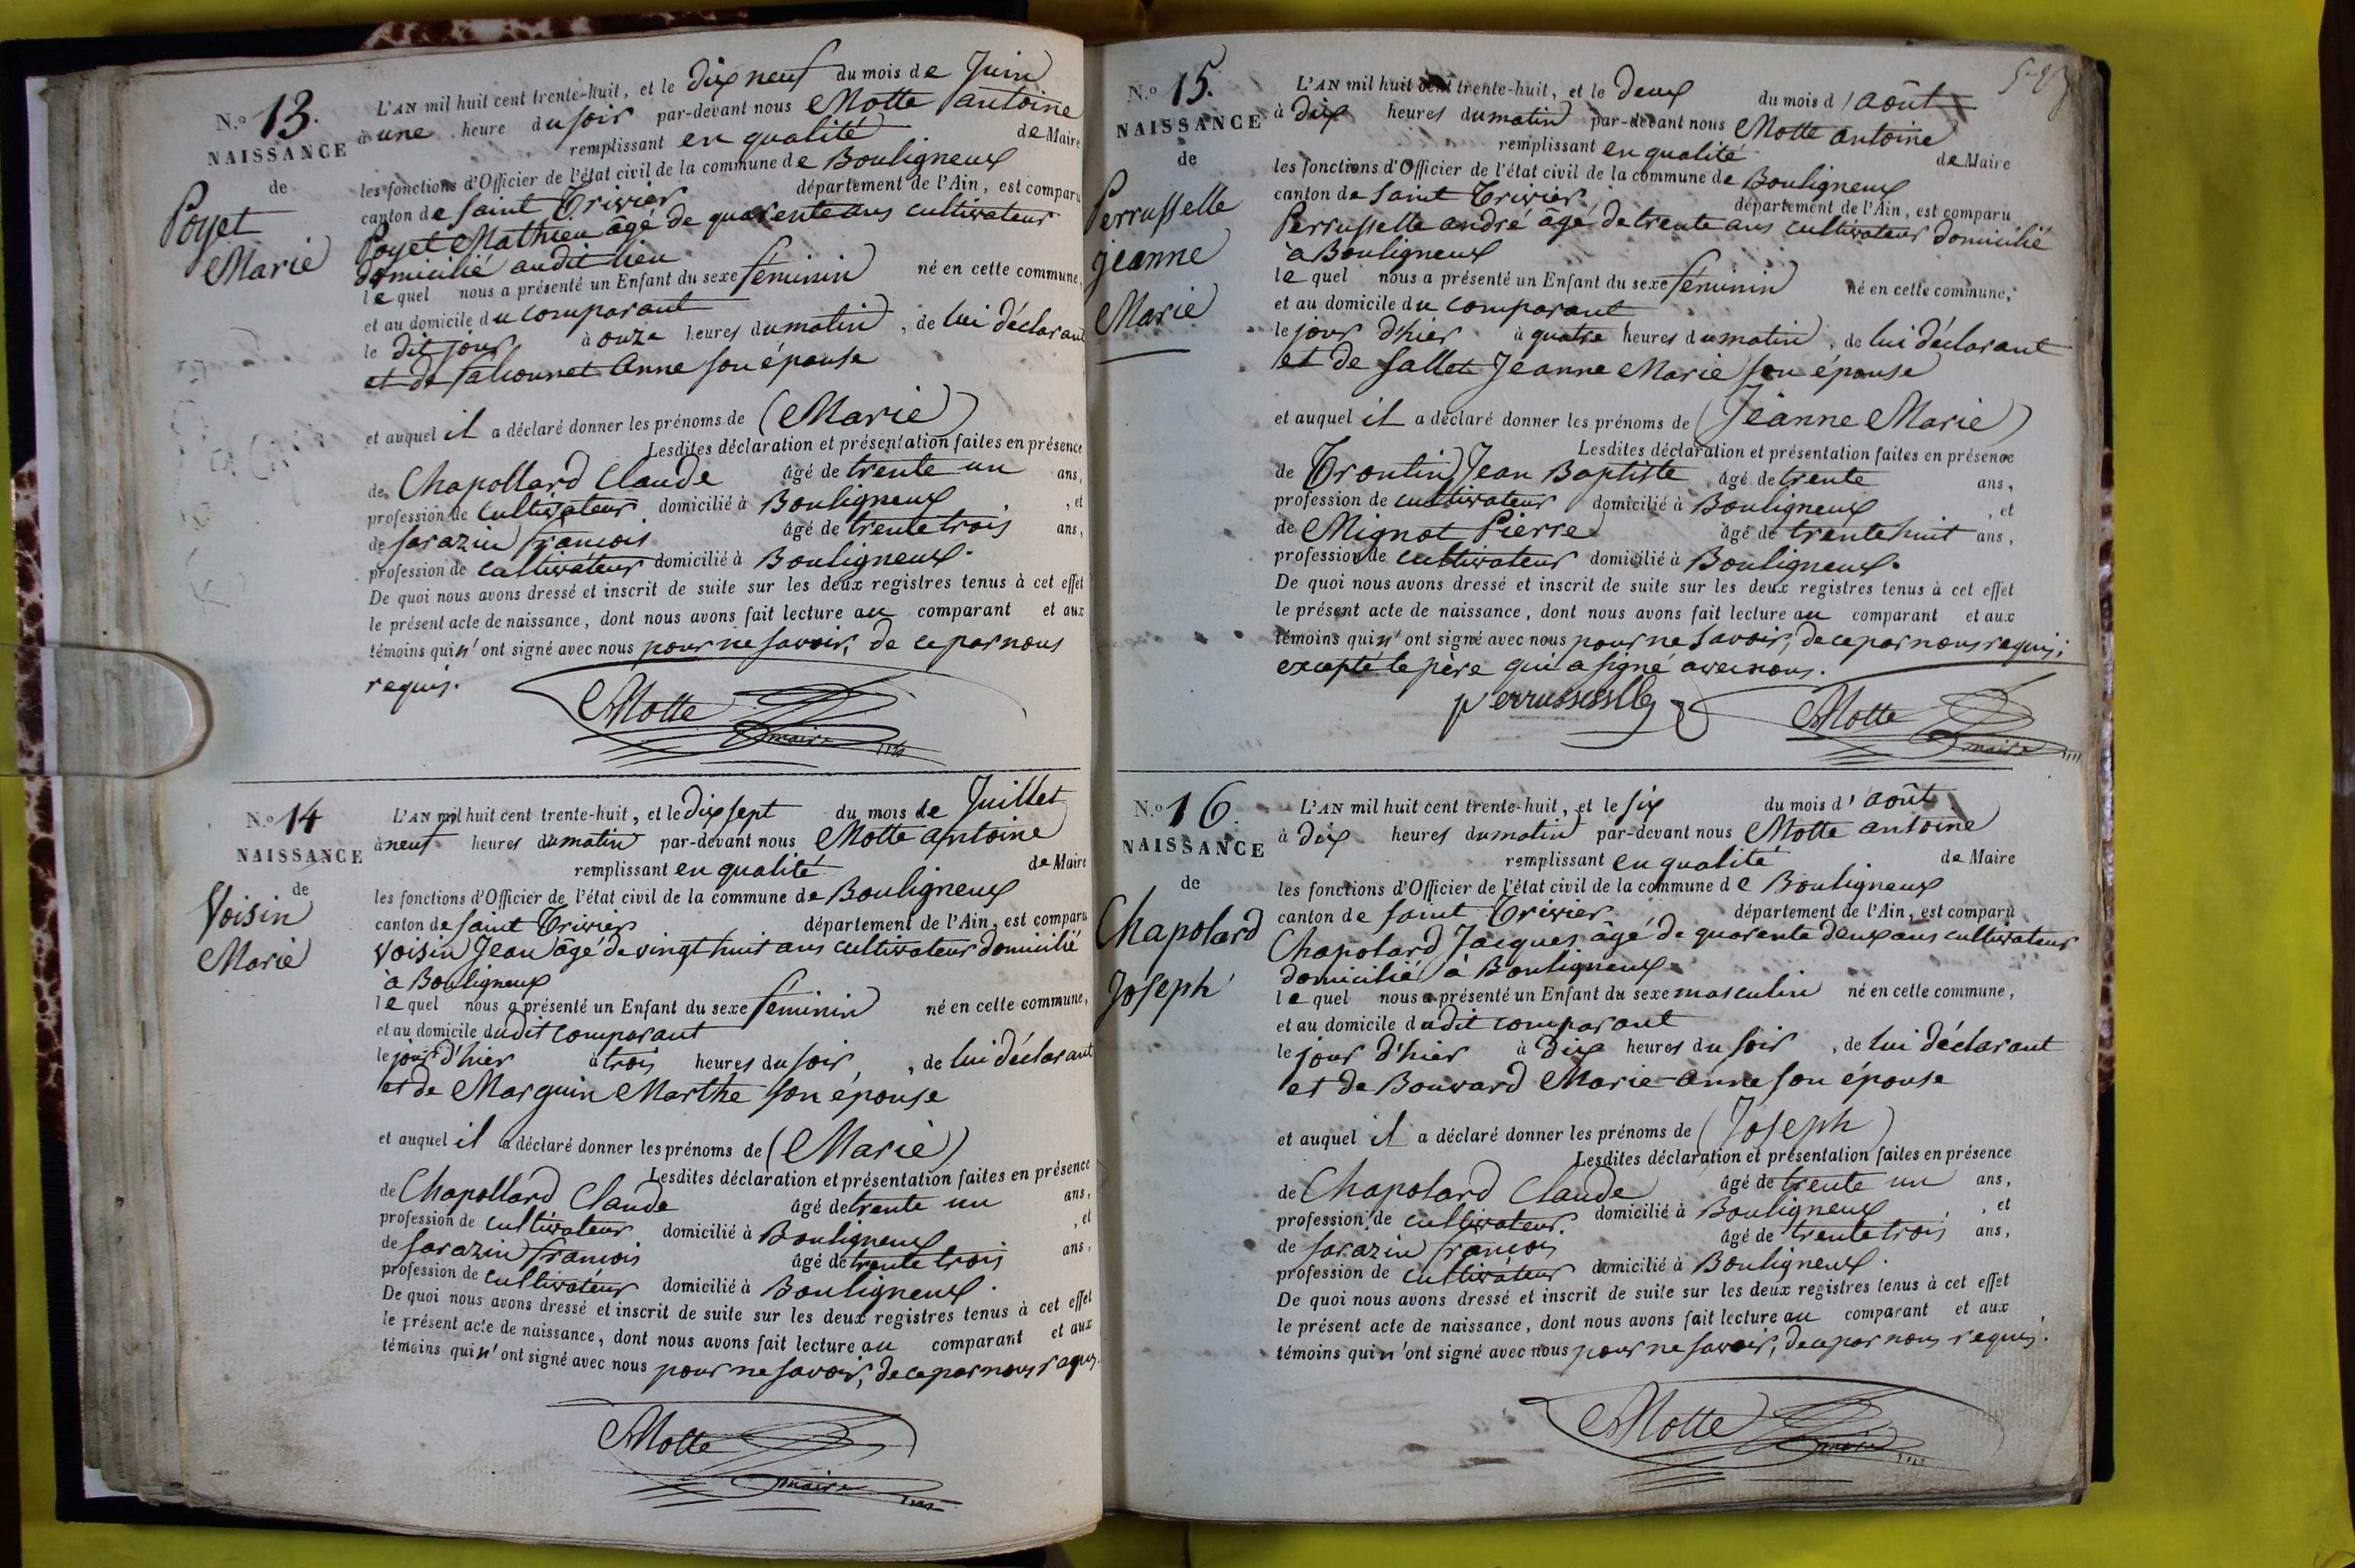 N.o 13.
NAISSANCE
de
Poyet
Marie
L'AN mil huit cent trente-huit, et le dix neuf du mois de Juin
à une heure du soir par-devant nous Motte antoine
remplissant en qualité de Maire
les fonctions d'Officier de l'état civil de la commune de Bouligneux
canton de Saint Trivier département de l'Ain, est comparu
Poyet Mathieu âgé de quarente ans cultivateur
domicilié audit lieu
lequel nous a présenté un Enfant du sexe féminin né en cette commune,
et au domicile du comparant
le dit jour à onze heures du matin, de lui déclarant
et de anne son épouse
et auquel il a déclaré donner les prénoms de (Marie)
Lesdites déclaration et présentation faites en présence
de Chapollard Claude âgé de trente un ans,
profession de cultivateur domicilié à Bouligneux, et
de Sarazin francois âgé de trente trois ans,
profession de cultivateur domicilié à Bouligneux.
De quoi nous avons dressé et inscrit de suite sur les deux registres tenus à cet effet
le présent acte de naissance, dont nous avons fait lecture au comparant et aux
témoins qui n'ont signé avec nous pour ne savoir, de ce par nous
requis.
Motte
maire
N.o 14
NAISSANCE
de
Voisin
Marie
L'AN mil huit cent trente-huit, et le dix sept du mois de Juillet
à neuf heures du matin par-devant nous Motte antoine
remplissant en qualité de Maire
les fonctions d'Officier de l'état civil de la commune de Bouligneux
canton de Saint Trivier département de l'Ain, est comparu
Voisin Jean âgé de vingt huit ans cultivateur domicilié
à Bouligneux
lequel nous a présenté un Enfant du sexe féminin né en cette commune,
et au domicile dudit comparant
le jour d'hier à trois heures du soir, de lui déclarant
et de Marguin Marthe son épouse
et auquel il a déclaré donner les prénoms de (Marie)
Lesdites déclaration et présentation faites en présence
de Chapollard Claude âgé de trente un ans,
profession de cultivateur domicilié à Bouligneux, et
de Sarazin francois âgé de trente trois ans,
profession de cultivateur domicilié à Bouligneux.
De quoi nous avons dressé et inscrit de suite sur les deux registres tenus à cet effet
le présent acte de naissance, dont nous avons fait lecture au comparant et aux
témoins qui n'ont signé avec nous pour ne savoir, de ce par nous requis.
Motte
maire
N.o 15.
NAISSANCE
de
Perrusselle
jeanne
Marie
L'AN mil huit cent trente-huit, et le deux du mois d'août
à dix heures du matin par-devant nous Motte antoine
remplissant en qualité de Maire
les fonctions d'Officier de l'état civil de la commune de Bouligneux
canton de Saint Trivier département de l'Ain, est comparu
Perrusselle andré âgé de trente ans cultivateur domicilié
à Bouligneux
lequel nous a présenté un Enfant du sexe féminin né en cette commune,
et au domicile du comparant
le jour d'hier à quatre heures du matin, de lui déclarant
et de Sallet Jeanne Marie son épouse
et auquel il a déclaré donner les prénoms de (Jeanne Marie)
Lesdites déclaration et présentation faites en présence
de Trontin Jean Baptiste âgé de trente ans,
profession de cultivateur domicilié à Bouligneux, et
de Mignot Pierre âgé de trente huit ans,
profession de cultivateur domicilié à Bouligneux.
De quoi nous avons dressé et inscrit de suite sur les deux registres tenus à cet effet
le présent acte de naissance, dont nous avons fait lecture au comparant et aux
témoins qui n'ont signé avec nous pour ne savoir, de ce par nous requis;
excepté le père qui a signé avec nous.
perrusselle
Motte
maire
N.o 16.
NAISSANCE
de
Chapolard
Joseph
L'AN mil huit cent trente-huit, et le six du mois d'août
à dix heures du matin par-devant nous Motte antoine
remplissant en qualité de Maire
les fonctions d'Officier de l'état civil de la commune de Bouligneux
canton de Saint Trivier département de l'Ain, est comparu
Chapolard Jacques âgé de quarente deux ans cultivateur
domicilié à Bouligneux
lequel nous a présenté un Enfant du sexe masculin né en cette commune,
et au domicile dudit comparant
le jour d'hier à dix heures du soir, de lui déclarant
et de Bouvard Marie-anne son épouse
et auquel il a déclaré donner les prénoms de (Joseph)
Lesdites déclaration et présentation faites en présence
de Chapolard Claude âgé de trente un ans,
profession de cultivateur domicilié à Bouligneux, et
de Sarazin francois âgé de trente trois ans,
profession de cultivateur domicilié à Bouligneux.
De quoi nous avons dressé et inscrit de suite sur les deux registres tenus à cet effet
le présent acte de naissance, dont nous avons fait lecture au comparant et aux
témoins qui n'ont signé avec nous pour ne savoir, de ce par nous requis.
Motte
maire